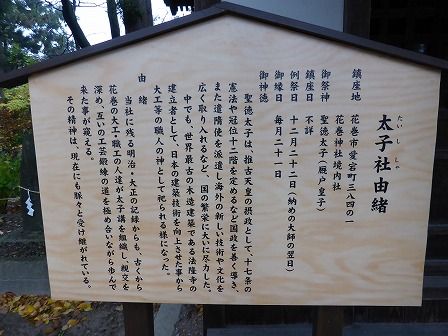 太子社由緒
たいししゃ
鎮座地 花巻市愛宕町三八四の一
花巻神社境内社
御祭神 聖徳太子(厩戸皇子)
鎮座日 不詳
例祭日 十二月二十二日(納めの大師の翌日)
御縁日 毎月二十二日
御神徳
聖徳太子は、推古天皇の摂政として、十七条の
憲法や冠位十二階を定めるなど国政を善く導き、
また遣隋使を派遣し海外の新しい技術や文化を
広く取り入れるなど、国の繁栄に大いに尽力した。
中でも、世界最古の木造建築である法隆寺の
建立者として、日本の建築技術を向上させた事から
大工等の職人の神として祀られる様になった。
由緒
当社に残る明治・大正の記録からも、古くから
花巻の大工・職工の人達が太子講を組織し、親交を
深め、互いの工芸鍛練の道を極め合いながら歩んで
来た事が窺える。
その精神は、現在にも脈々と受け継がれている。